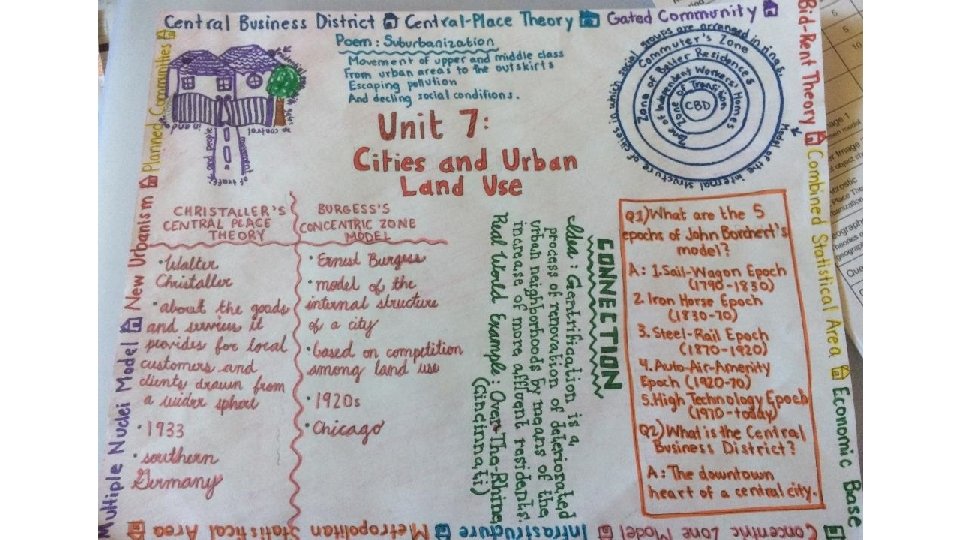 Central Business District Central-Place Theory Gated Community
Bid-Rent Theory Combined Statistical Area Economic Base
Concentric Zone Model Infrastructure Metropolitan Statistical Area
Multiple Nuclei Model New Urbanism Planned Communities
Poem: Suburbanization
Movement of upper and middle class
From urban areas to the outskirts
Escaping pollution
And decling social conditions.
Unit 7:
Cities and Urban
Land Use
Model of the internal structure of cities in which social groups are arranged in rings.
Commuter's Zone
Zone of Better Residences
Zone of Independent Workers' Homes
Zone of Transition
CBD
of traffic and people
movement
control
CHRISTALLER'S
CENTRAL PLACE
THEORY
• Walter
Christaller
• about the goods
and services it
provides for local
customers and
clients drawn from
a wider sphere
• 1933
• southern
Germany
BURGESS'S
CONCENTRIC ZONE
MODEL
• Ernest Burgess
• model of the
internal structure
of a city
• based on competition
among land use
• 1920s
• Chicago
CONNECTION
Idea: Gentrification is a
process of renovation of deteriorated
urban neighborhoods by means of the
increase of more affluent residents.
Real World Example: Over-The-Rhine
(Cincinnati)
Q1) What are the 5
epochs of John Borchert's
model?
A: 1. Sail-Wagon Epoch
(1790-1830)
2. Iron Horse Epoch
(1830-70)
3. Steel-Rail Epoch
(1870-1920)
4. Auto-Air-Amenity
Epoch (1920-70)
5. High Technology Epoch
(1970-today)
Q2) What is the Central
Business District?
A: The downtown
heart of a central city.